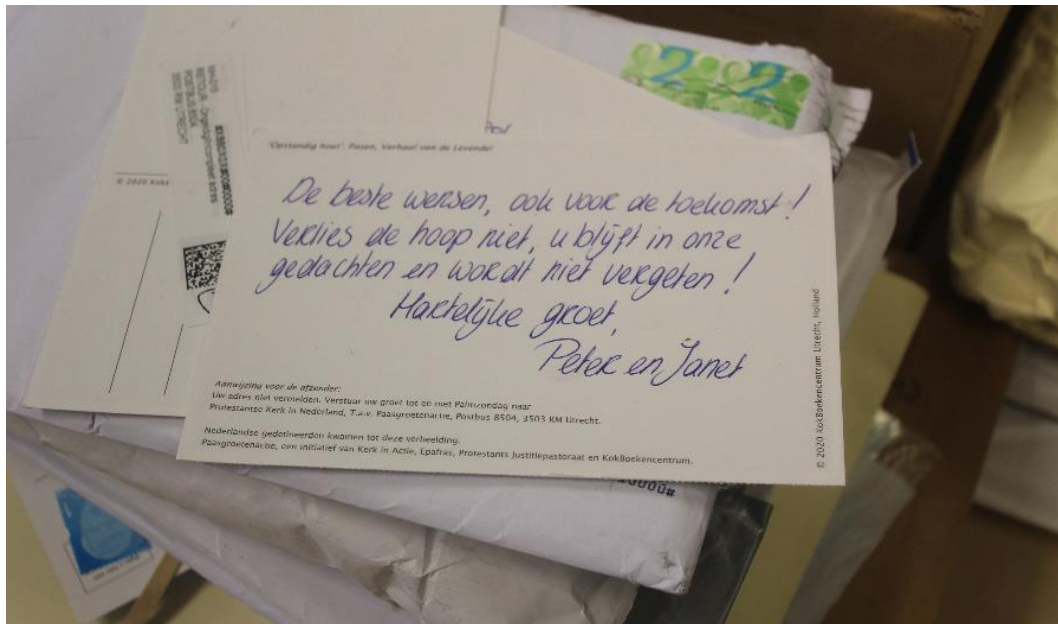 2 2
MH-210
RETOUR - Ongeldig/incompleet adres
POSTBUS 8504
3503 RM UTRECHT
© 2020 Kok
'Opstandig hout', Pasen, Verhaal van de Levende!
De beste wensen, ook voor de toekomst!
Verlies de hoop niet, u blijft in onze
gedachten en wordt niet vergeten!
Hartelijke groet,
Peter en Janet
Aanwijzing voor de afzender:
Uw adres niet vermelden. Verstuur uw groet tot en met Palmzondag naar
Protestantse Kerk in Nederland, T.a.v. Paasgroetenactie, Postbus 8504, 3503 RM Utrecht.
Nederlandse gedetineerden kwamen tot deze verbeelding.
Paasgroetenactie, een initiatief van Kerk in Actie, Epafras, Protestants Justitiepastoraat en KokBoekencentrum.
© 2020 KokBoekencentrum Utrecht, Holland